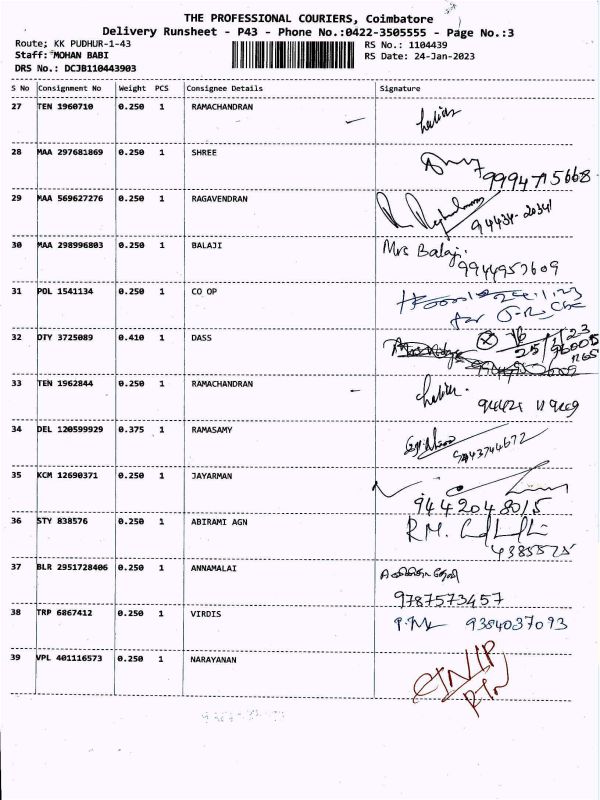 THE PROFESSIONAL COURIERS, Coimbatore
Delivery Runsheet - P43 - Phone No.:0422-3505555 - Page No.:3
Route; KK PUDHUR-1-43 RS No.: 1104439
Staff: MOHAN BABI RS Date: 24-Jan-2023
DRS No.: DCJB110443903
S No Consignment No Weight PCS Consignee Details Signature
27 TEN 1960710 0.250 1 RAMACHANDRAN
28 MAA 297681869 0.250 1 SHREE
9994715668
29 MAA 569627276 0.250 1 RAGAVENDRAN
94434-20341
30 MAA 298996803 0.250 1 BALAJI Mrs Balaji.
9944957609
31 POL 1541134 0.250 1 CO OP
32 OTY 3725089 0.410 1 DASS
33 TEN 1962844 0.250 1 RAMACHANDRAN
34 DEL 120599929 0.375 1 RAMASAMY
9843744672
35 KCM 12690371 0.250 1 JAYARMAN
9442048015
36 STY 838576 0.250 1 ABIRAMI AGN R.M.
37 BLR 2951728406 0.250 1 ANNAMALAI
9787573457
38 TRP 6867412 0.250 1 VIRDIS 9384037093
39 VPL 401116573 0.250 1 NARAYANAN